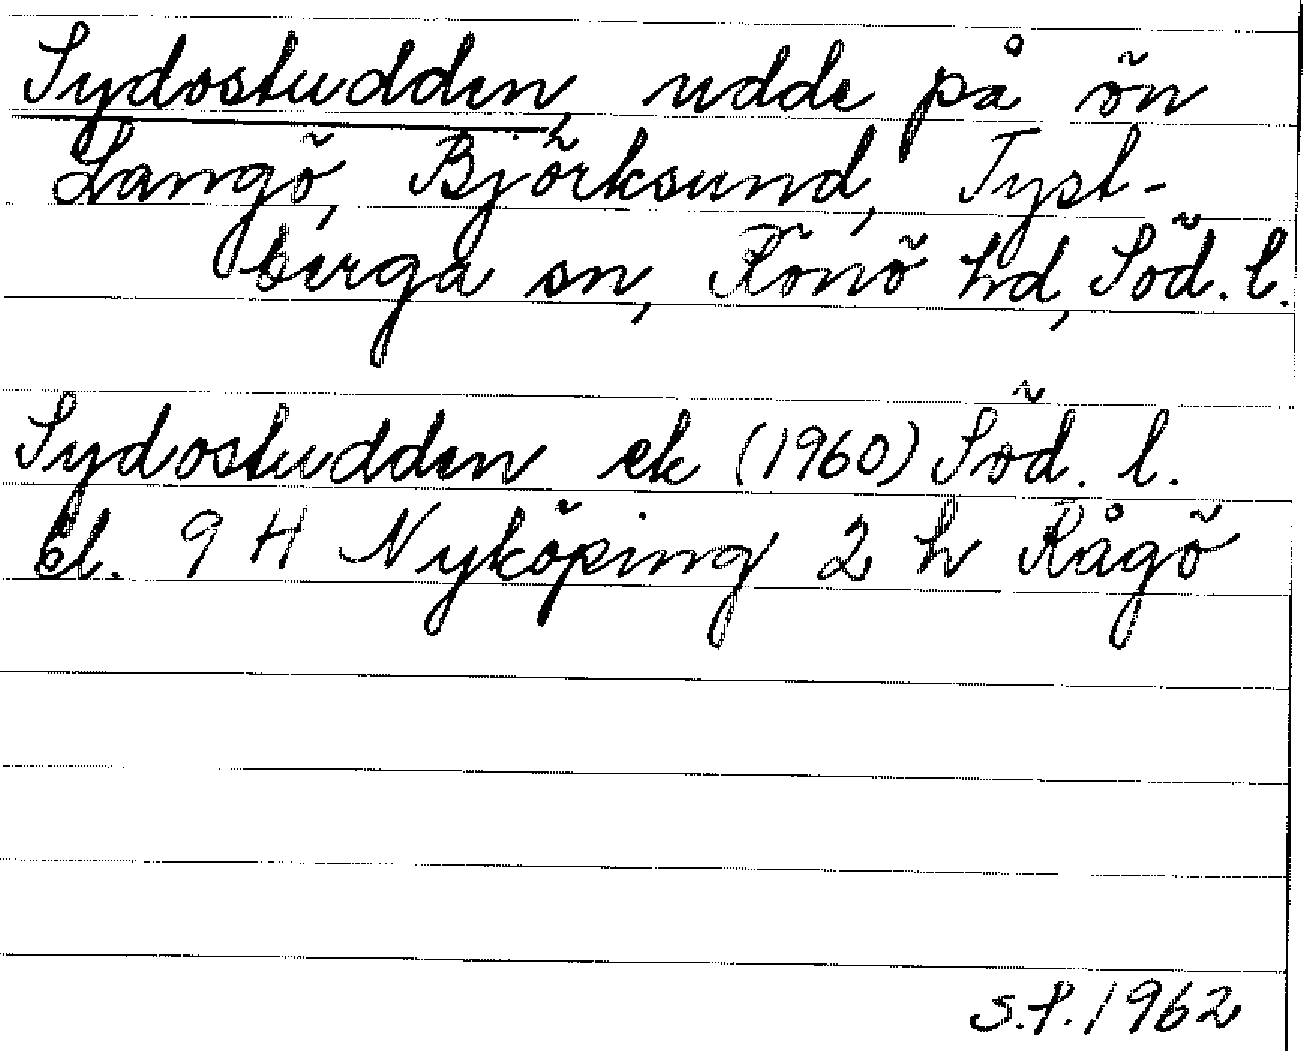 Sydostudden, udde på ön
Langö, Björksund, Tyst-
berga sn, Rönö hd, Söd. l.
Sydostudden ek (1960) Söd. l.
bl. 9 H Nyköping 2 h Rågö
S.P. 1962